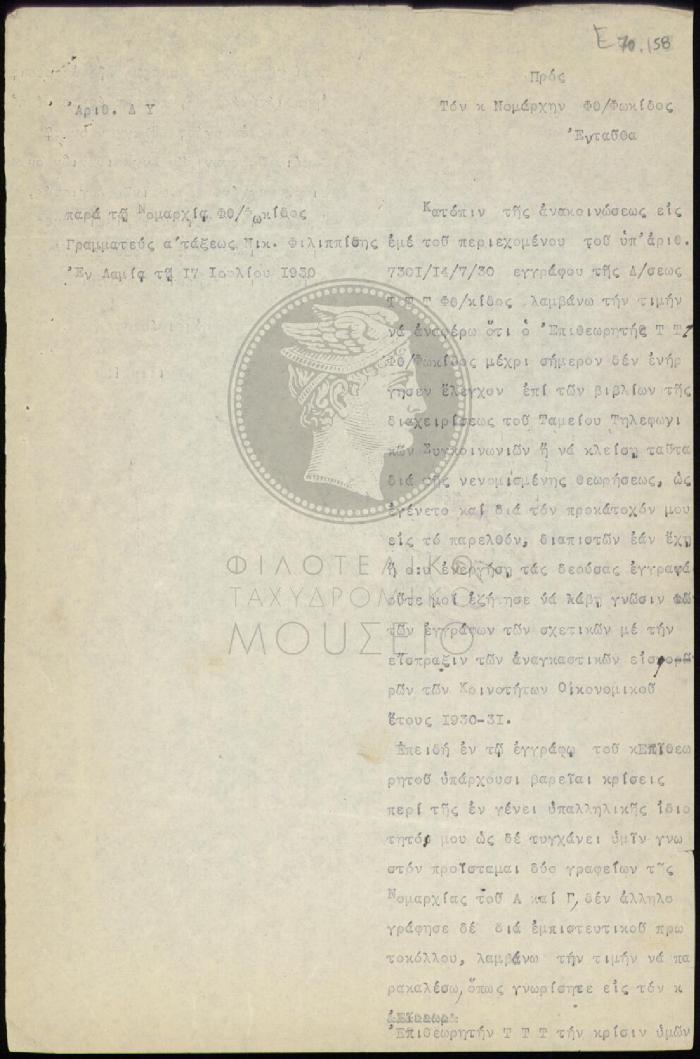 Ε 70.158
Πρός
Τόν κ Νομάρχην Φθ/Φωκίδος
Ἐνταῦθα
Ἀριθ. Δ Υ
παρά τῇ Νομαρχίᾳ Φθ/Φωκίδος
Γραμματεύς α'τάξεως Νικ. Φιλιππίδης
Ἐν Λαμίᾳ τῇ 17 Ιουλίου 1930
Κατόπιν τῆς ἀνακοινώσεως εἰς
ἐμέ τοῦ περιεχομένου τοῦ ὑπ'ἀριθ.
7301/14/7/30 ἐγγράφου τῆς Δ/σεως
Τ Τ Τ Φθ/κίδος λαμβάνω τήν τιμήν
νά ἀναφέρω ὅτι ὁ Ἐπιθεωρητής Τ Τ
Φθ/Φωκίδος μέχρι σήμερον δέν ἐνήρ
γησεν ἔλεγχον ἐπί τῶν βιβλίων τῆς
διαχειρίσεως τοῦ Ταμείου Τηλεφωνι
κῶν Συγκοινωνιῶν ἤ νά κλείσῃ ταῦτα
διά τῆς νενομισμένης θεωρήσεως, ὡς
ἐγένετο καί διά τόν προκάτοχόν μου
εἰς τό παρελθόν, διαπιστῶν ἐάν ἔχῃ
ἤ οὐ ἐνεργήσῃ τάς δεούσας ἐγγραφάς
οὔτε μοί ἐζήτησε νά λάβῃ γνῶσιν
τῶν ἐγγράφων τῶν σχετικῶν μέ τήν
εἴσπραξιν τῶν ἀναγκαστικῶν
ρῶν τῶν Κοινοτήτων Οἰκονομικοῦ
ἔτους 1930-31.
Ἐπειδή ἐν τῷ ἐγγράφῳ τοῦ κ Ἐπιθεω
ρητοῦ ὑπάρχουσι βαρεῖαι κρίσεις
περί τῆς ἐν γένει ὑπαλληλικῆς ἰδιο
τητός μου ὡς δέ τυγχάνει ὑμῖν γνω
στόν προΐσταμαι δύο γραφείων τῆς
Νομαρχίας τοῦ Α καί Γ, δέν ἀλληλο
γράφησε δέ διά ἐμπιστευτικοῦ πρω
τοκόλλου, λαμβάνω τήν τιμήν νά πα
ρακαλέσω, ὅπως γνωρίσητε εἰς τόν κ
Ἐπιθεωρητήν Τ Τ Τ τήν κρίσιν ὑμῶν
ΦΙΛΟΤΕΛΙΚΟ
ΤΑΧΥΔΡΟΜΙΚΟ
ΜΟΥΣΕΙΟ